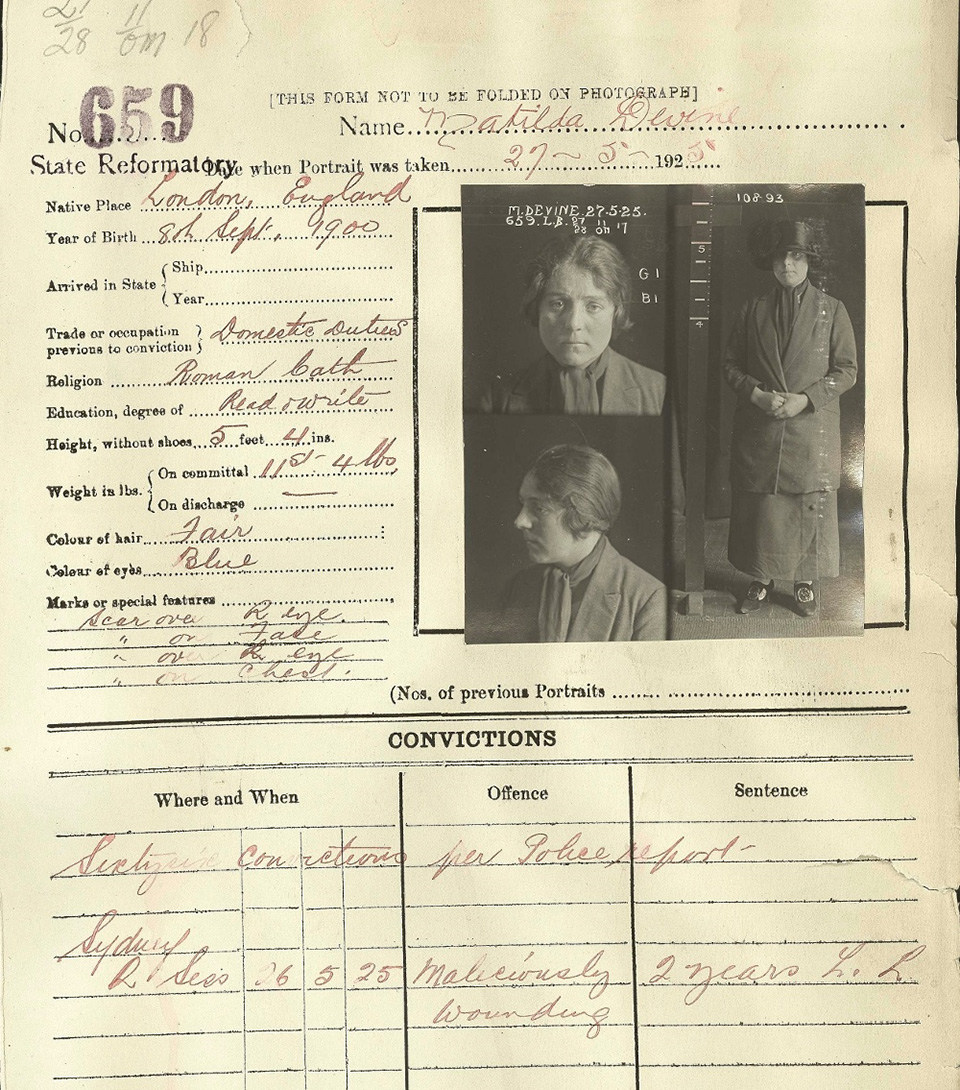 28 18
[THIS FORM NOT TO BE FOLDED ON PHOTOGRAPH]
No. 659
Name Matilda Devine
State Reformatory
Date when Portrait was taken 27-5-1925
Native Place London, England
Year of Birth 8th Sept. 1900
Arrived in State { Ship
Year
Trade or occupation previous to conviction } Domestic Duties
Religion Roman Cath
Education, degree of Read & write
Height, without shoes 5 feet 4 ins.
Weight in lbs. { On committal 11st- 4 lbs
On discharge —
Colour of hair Fair
Colour of eyes Blue
Marks or special features
Scar over R eye.
" on Face
" over R eye
" on Chest.
M. DEVINE. 27.5.25.
659. L.B. 27 11
28 on 17
G1
B1
108-93
5
4
(Nos. of previous Portraits
CONVICTIONS
Where and When
Offence
Sentence
convictions per Police report-
Sydney
Q Sess 26 5 25 Maliciously 2 years L. L.
wounding